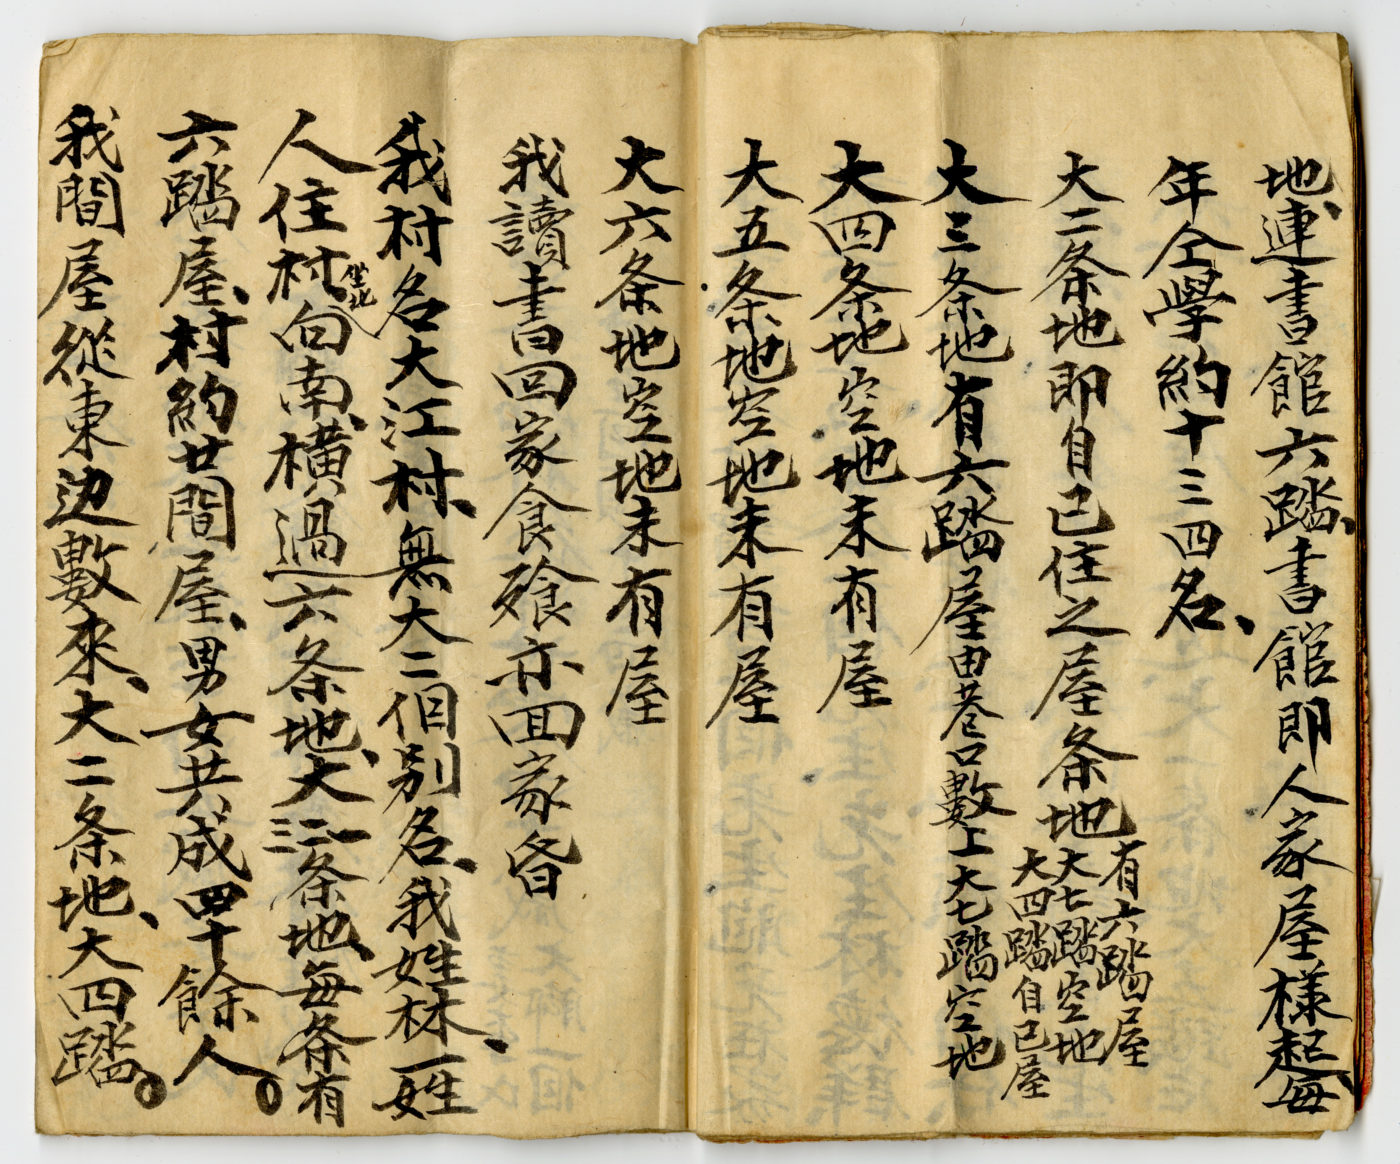 地、連書館六踏、書館即人家屋樣起、每
年仝學約十三四名、
大二条地即自己住之屋条地
有六踏屋
大七踏空地
大四踏自己屋
大三条地有六踏屋由巷口數上大七踏空地
大四条地空地未有屋
大五条地空地未有屋
大六条地空地未有屋
我讀書回家食飱亦回家昏
我村名大江村、無大二個别名、我姓林、一姓
人住村坐北向南、橫過六条地、大二三条地、每条有
六踏屋、村約廿間屋、男女共成四十餘人。
我間屋從東边數來、大二条地、大四踏。